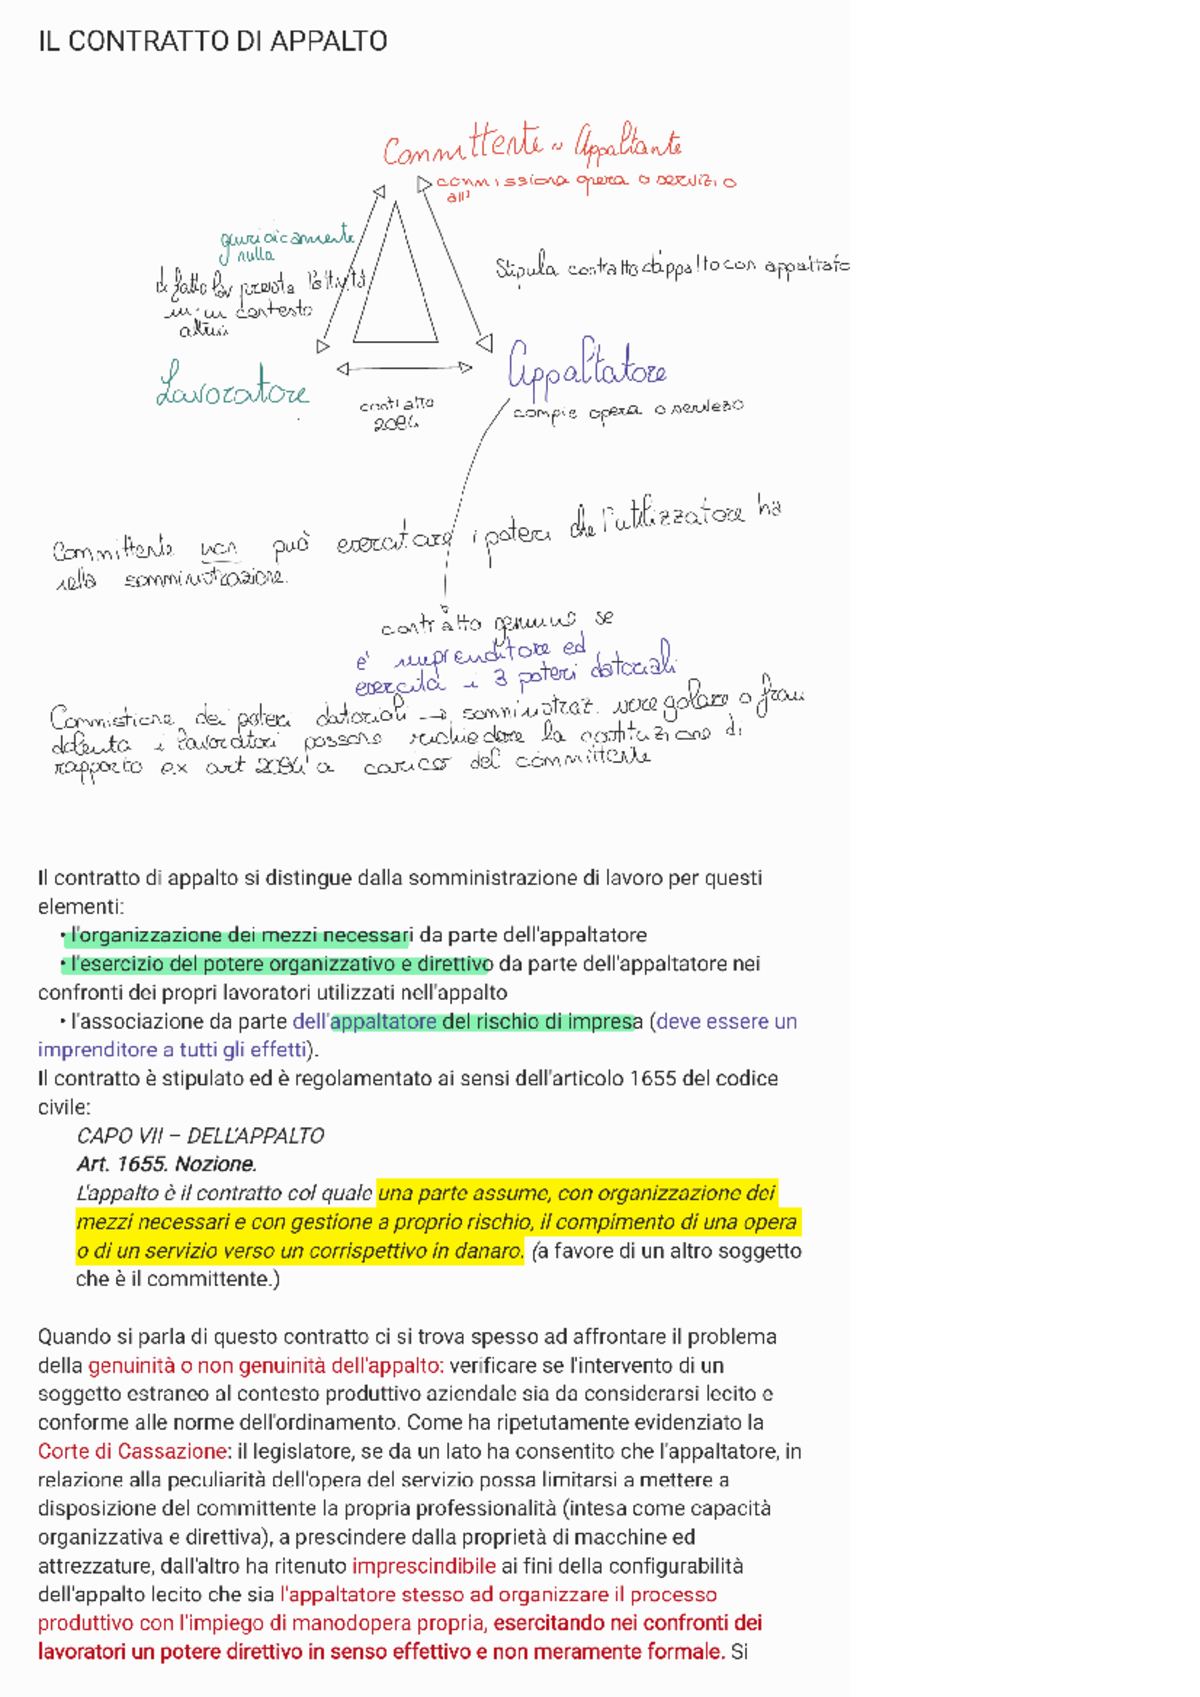 IL CONTRATTO DI APPALTO
Committente ~ Appaltante
commissiona opera o servizio
all'
giuridicamente
nulla
di fatto lav presta l'attività
in un contesto
altrui
Stipula contratto d'appalto con appaltato
Lavoratore
contratto
2094
Appaltatore
compie opera o servizio
Committente non può esercitare i poteri che l'utilizzatore ha
nella somministrazione.
contratto genuino se
e' imprenditore ed
esercita i 3 poteri datoriali
Commistione dei poteri datoriali → somministraz. irregolare o frau
dolenta i lavoratori possono richiedere la costituzione di
rapporto ex art 2094 a carico del committente
Il contratto di appalto si distingue dalla somministrazione di lavoro per questi
elementi:
• l'organizzazione dei mezzi necessari da parte dell'appaltatore
• l'esercizio del potere organizzativo e direttivo da parte dell'appaltatore nei
confronti dei propri lavoratori utilizzati nell'appalto
• l'associazione da parte dell'appaltatore del rischio di impresa (deve essere un
imprenditore a tutti gli effetti).
Il contratto è stipulato ed è regolamentato ai sensi dell'articolo 1655 del codice
civile:
CAPO VII – DELL'APPALTO
Art. 1655. Nozione.
L'appalto è il contratto col quale una parte assume, con organizzazione dei
mezzi necessari e con gestione a proprio rischio, il compimento di una opera
o di un servizio verso un corrispettivo in danaro. (a favore di un altro soggetto
che è il committente.)
Quando si parla di questo contratto ci si trova spesso ad affrontare il problema
della genuinità o non genuinità dell'appalto: verificare se l'intervento di un
soggetto estraneo al contesto produttivo aziendale sia da considerarsi lecito e
conforme alle norme dell'ordinamento. Come ha ripetutamente evidenziato la
Corte di Cassazione: il legislatore, se da un lato ha consentito che l'appaltatore, in
relazione alla peculiarità dell'opera del servizio possa limitarsi a mettere a
disposizione del committente la propria professionalità (intesa come capacità
organizzativa e direttiva), a prescindere dalla proprietà di macchine ed
attrezzature, dall'altro ha ritenuto imprescindibile ai fini della configurabilità
dell'appalto lecito che sia l'appaltatore stesso ad organizzare il processo
produttivo con l'impiego di manodopera propria, esercitando nei confronti dei
lavoratori un potere direttivo in senso effettivo e non meramente formale. Si